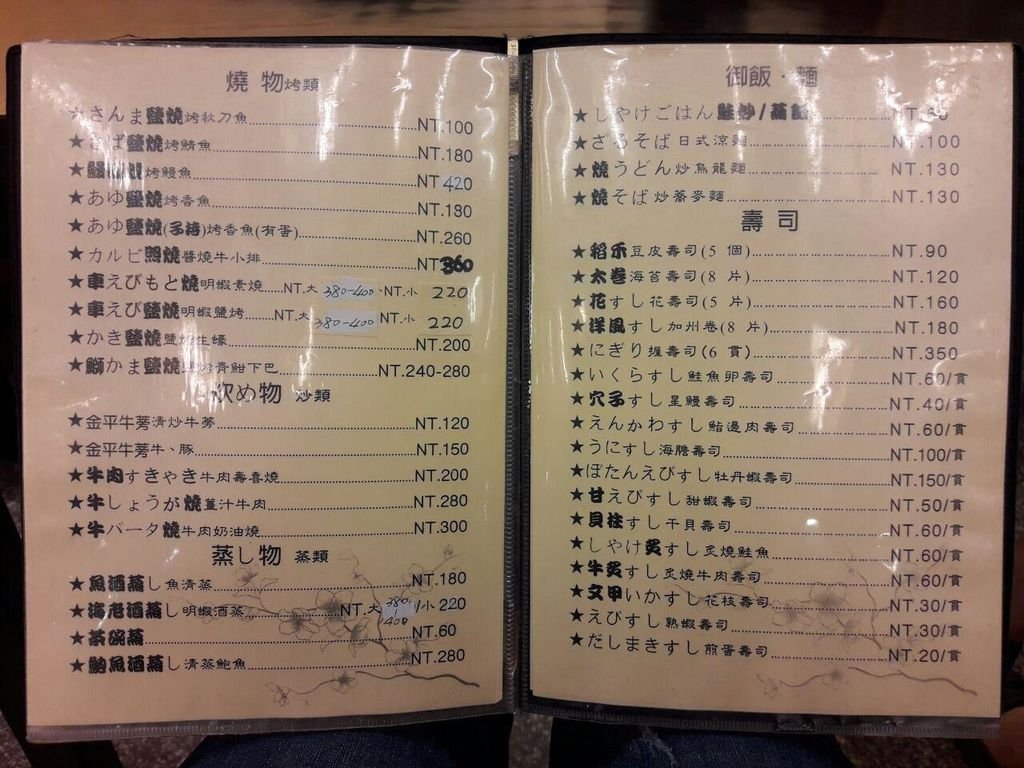 燒物烤類
さんま鹽燒烤秋刀魚 NT.100
★さば鹽燒烤鯖魚 NT.180
烤鰻魚 NT 420
★あゆ鹽燒烤香魚 NT.180
★あゆ鹽燒(子持)烤香魚(有蛋) NT.260
★カルビ照燒醬燒牛小排 NT 360
★車えびもと燒明蝦素燒 NT.大 380-400、NT.小 220
★車えび鹽燒明蝦鹽烤 NT.大 380-400 NT.小 220
★かき鹽燒鹽烤生蠔 NT.200
★鰤かま鹽燒烤青魽下巴 NT.240-280
炊め物 炒類
★金平牛蒡清炒牛蒡 NT.120
★金平牛蒡牛、豚 NT.150
★牛肉すきやき牛肉壽喜燒 NT.200
★牛しょうが燒薑汁牛肉 NT.280
★牛バータ燒牛肉奶油燒 NT.300
蒸し物 蒸類
★魚酒蒸し魚清蒸 NT.180
★海老酒蒸し明蝦酒蒸 NT.大 380-400 小 220
★茶碗蒸 NT.60
★鮑魚酒蒸し清蒸鮑魚 NT.280
御飯・麵
★しやけごはん鮭炒/蒸飯
★ざるそば日式涼麵 NT.100
★燒うどん炒烏龍麵 NT.130
★燒そば炒蕎麥麵 NT.130
壽司
★稻禾豆皮壽司(5 個) NT.90
★太卷海苔壽司(8 片) NT.120
★花すし花壽司(5 片) NT.160
★洋風すし加州卷(8 片) NT.180
★にぎり握壽司(6 貫) NT.350
★いくらすし鮭魚卵壽司 NT.60/貫
★穴子すし星鰻壽司 NT.40/貫
★えんかわすし鮨邊肉壽司 NT.60/貫
★うにすし海膽壽司 NT.100/貫
★ぼたんえびすし牡丹蝦壽司 NT.150/貫
★甘えびすし甜蝦壽司 NT.50/貫
★貝柱すし干貝壽司 NT.60/貫
★しやけ炙すし炙燒鮭魚 NT.60/貫
★牛炙すし炙燒牛肉壽司 NT.60/貫
★文甲いかすし花枝壽司 NT.30/貫
★えびすし熟蝦壽司 NT.30/貫
★だしまきすし煎蛋壽司 NT.20/貫